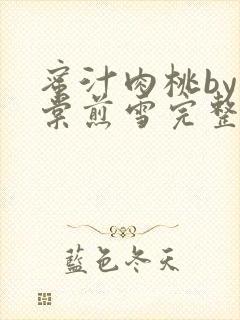 蜜汁肉桃by
棠煎雪完整
藍色冬天